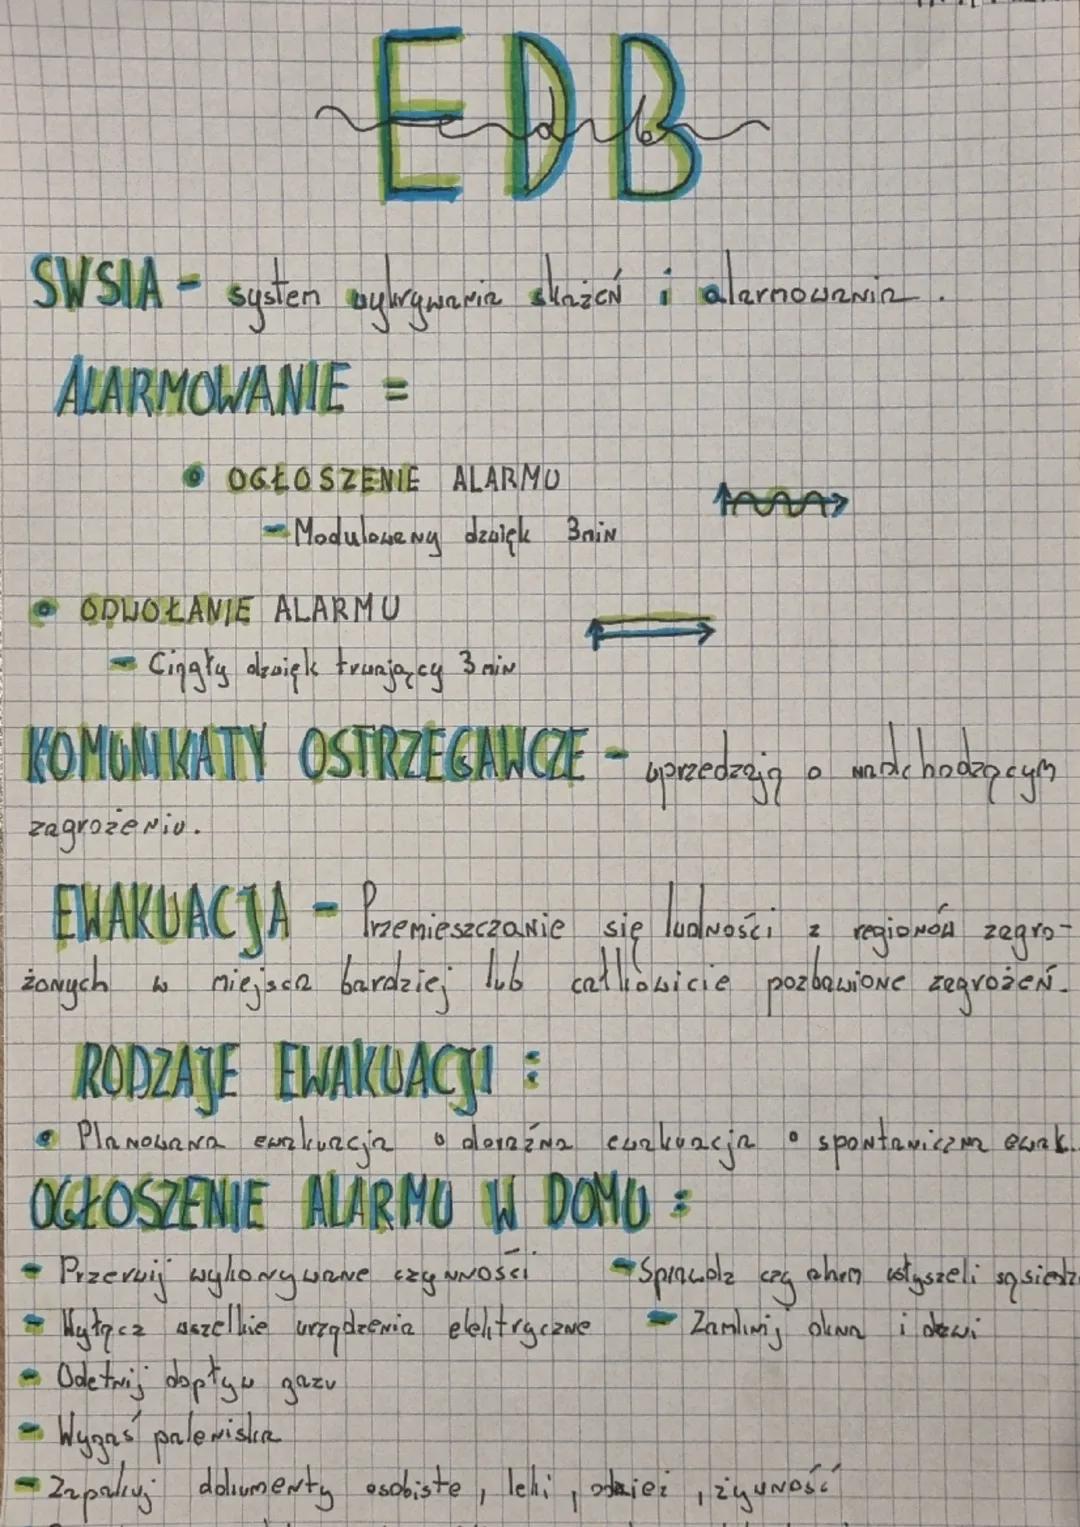 EDB
edb
SWSIA - system wykrywania skażeń i alarmowania.
ALARMOWANIE =
• OGŁOSZENIE ALARMU
- Modulowany dzwięk 3min
• ODWOŁANIE ALARMU
- Ciągły dzwięk trwający 3 min
KOMUNIKATY OSTRZEGAWCZE - uprzedzają o nadchodzącym
zagrożeniu.
EWAKUACJA - Przemieszczanie się ludności z regionów zagro-
żonych w miejsca bardziej lub całkowicie pozbawione zagrożeń.
RODZAJE EWAKUACJI :
• Planowana ewakuacja • doraźna ewakuacja • spontaniczna ewak.
OGŁOSZENIE ALARMU W DOMU :
- Przerwij wykonywane czynności - Sprawdz czy alarm usłyszeli sąsiedzi
- Wyłącz wszelkie urządzenia elektryczne - Zamknij okna i drzwi
- Odetnij dopływ gazu
- Wygaś paleniska
- Zapakuj dokumenty osobiste, leki, odzież, żywność